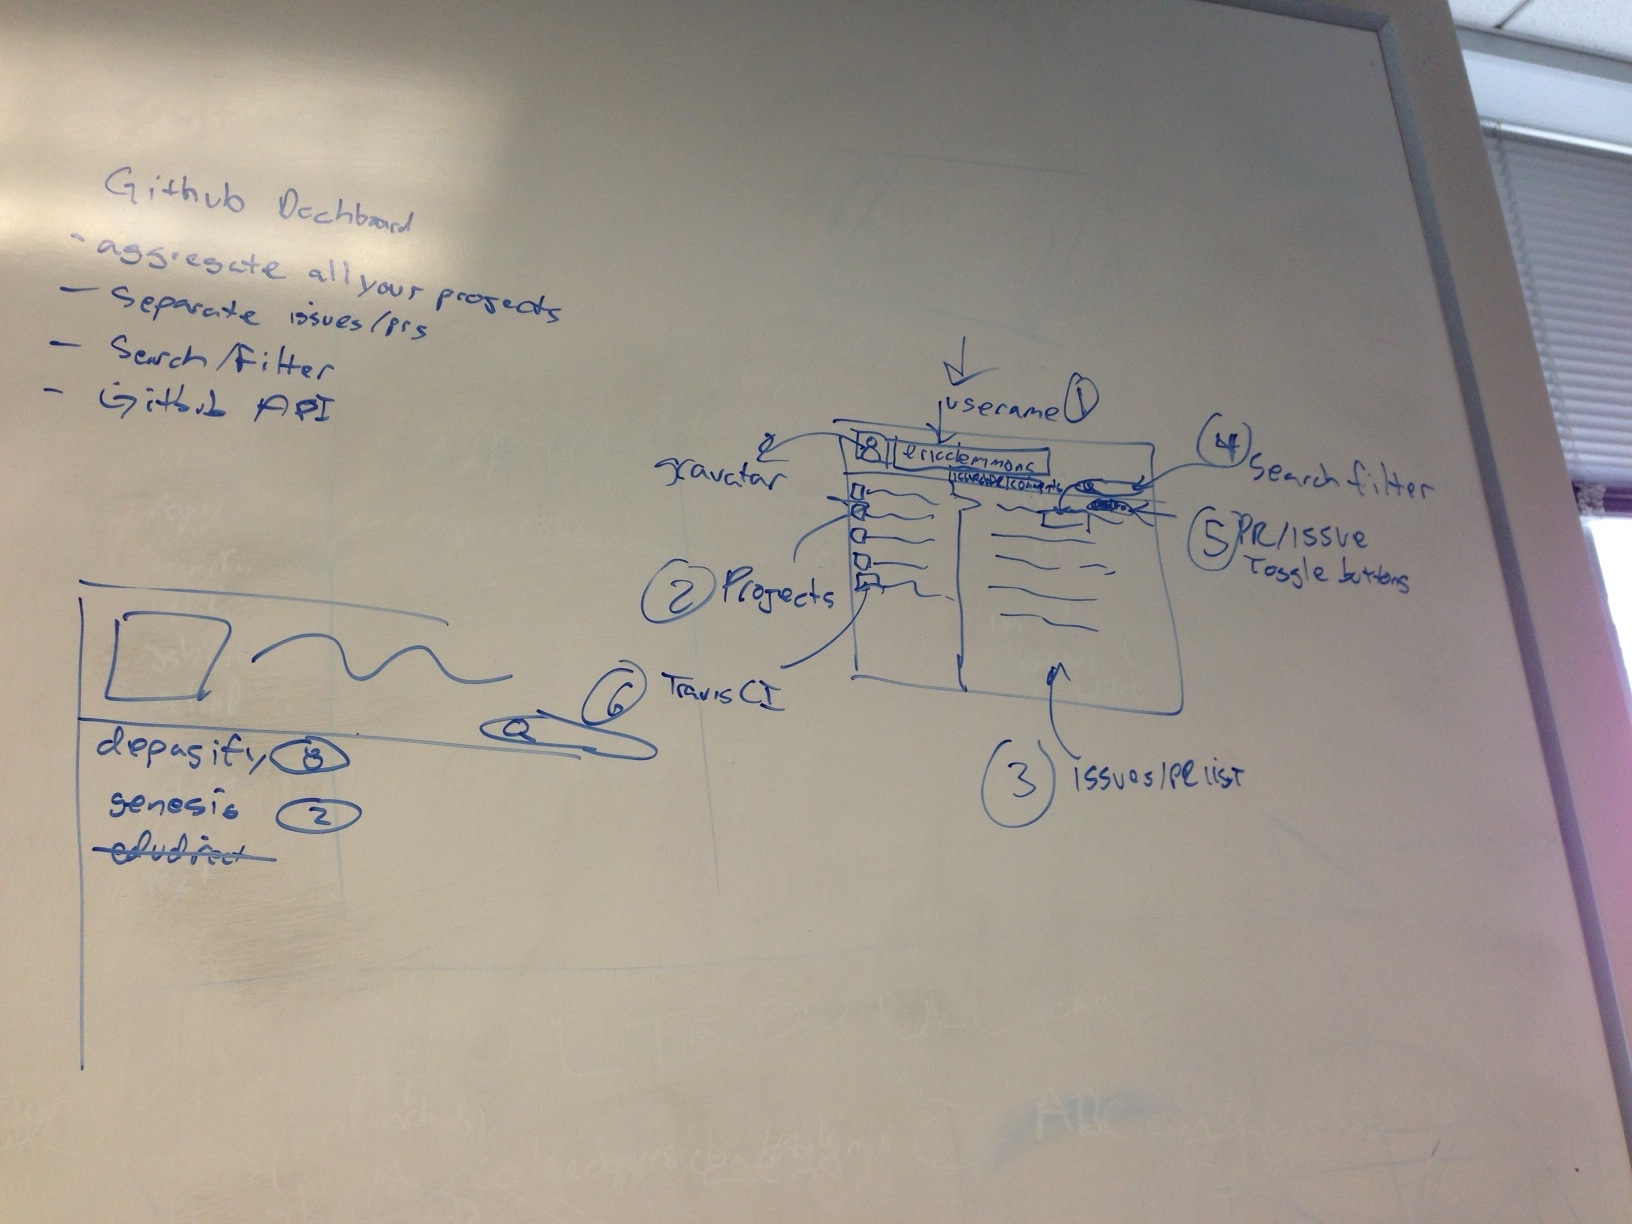 Github Dashboard
- aggregate all your projects
- Separate issues/prs
- Search/Filter
- Github API
username 1
gravatar
ericclemmons
4 Search filter
5 PR/issue
Toggle buttons
2 Projects
6 Travis CI
3 issues/PR list
depagify 8
genesis 2